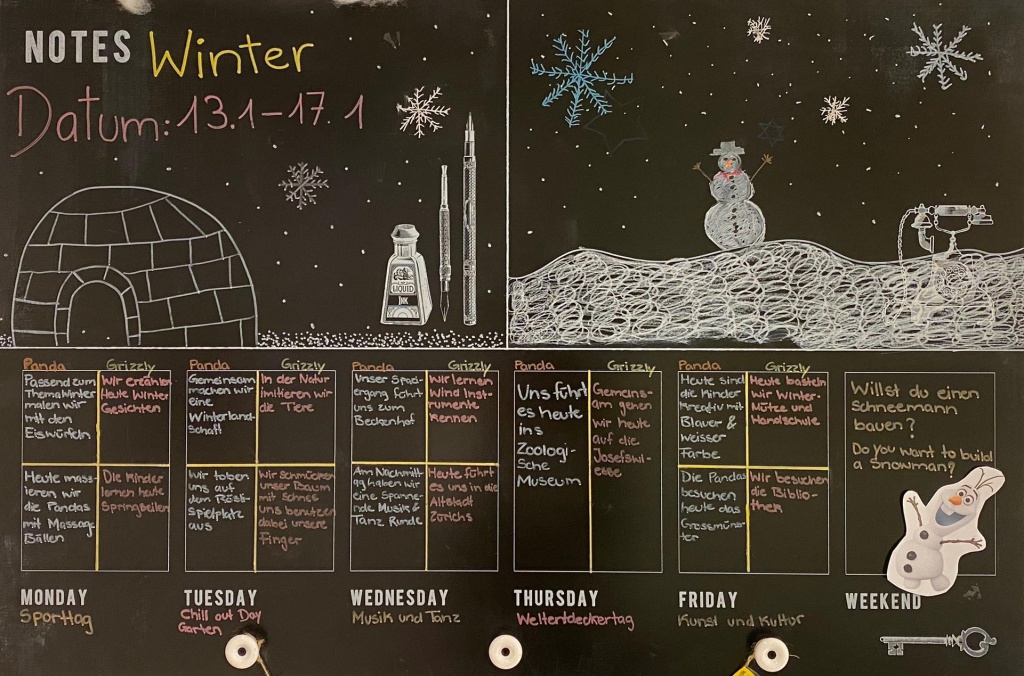 NOTES Winter
Datum: 13.1-17.1
LIQUID
INK
Panda Grizzly
Passend zum
Thema Winter
malen wir
mit den
Eiswürfeln
Wir erzählen
Heute Winter
Gesichten
Heute mass-
ieren wir
die Pandas
mit Massag-
Bällen
Die Kinder
lernen heute
Springseilen
MONDAY
Sporttag
Panda Grizzly
Gemeinsam
machen wir
eine
Winterland-
schaft
In der Natur
imitieren wir
die Tiere
Wir toben
uns auf
dem Rösli-
spielplatz
aus
Wir schmücken
unser Baum
mit Schnee
uns benutzen
dabei unsere
Finger
TUESDAY
Chill out Day
Garten
Panda Grizzly
Unser Spazi-
ergang führt
uns zum
Beckenhof
Wir lernen
Wind Inst-
rumente
kennen
Am Nachmitt-
ag haben wir
eine Spanne-
nde Musik &
Tanz Runde
Heute führt
es uns in die
Altstadt
Zürichs
WEDNESDAY
Musik und Tanz
Panda Grizzly
Uns führt
es heute
ins
Zoologi-
sche
Museum
Gemeins-
am gehen
wir heute
auf die
Josefswi-
esse
THURSDAY
Weltentdeckertag
Panda Grizzly
Heute sind
die Kinder
kreativ mit
Blauer &
weisser
Farbe
Heute basteln
wir Winter-
Mütze und
Handschuhe
Die Pandas
besuchen
heute das
Grossmüns-
ter
Wir besuchen
die Biblio-
thek
FRIDAY
Kunst und Kultur
Willst du einen
Schneemann
bauen?
Do you want to build
a Snowman?
WEEKEND